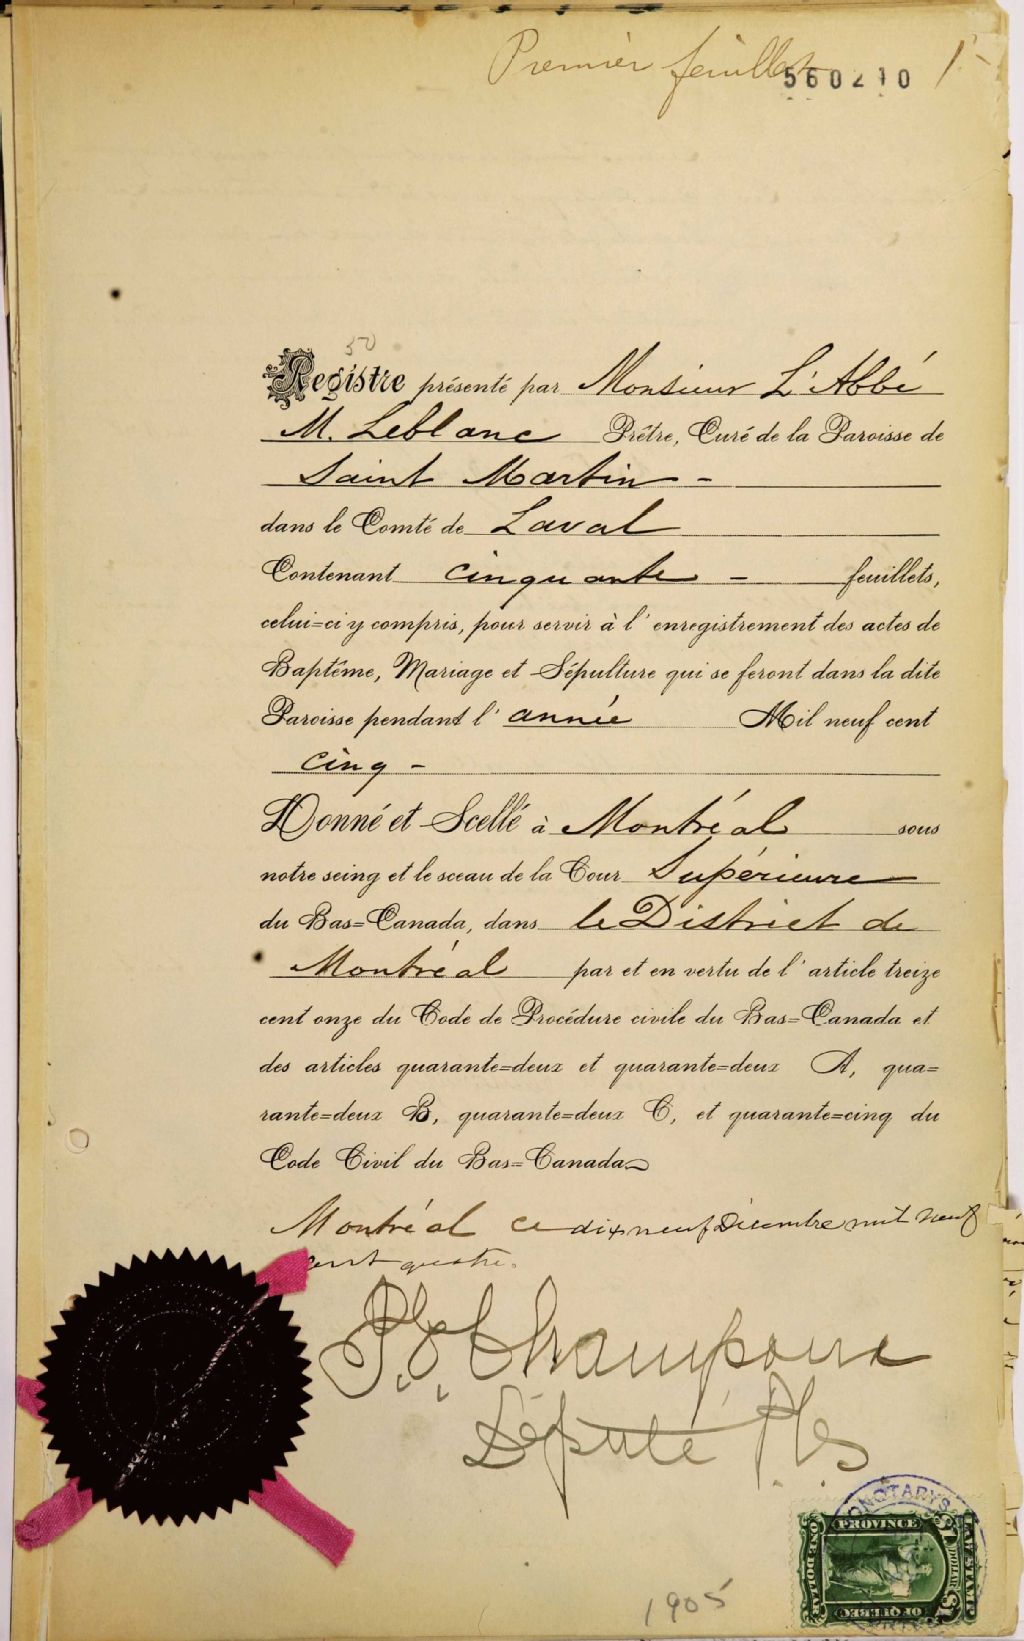 Premier feuillet 560210 1
50
Registre présenté par Monsieur L'Abbé
M. Leblanc Prêtre, Curé de la Paroisse de
Saint Martin -
dans le Comté de Laval
Contenant cinquante - feuillets,
celui=ci y compris, pour servir à l'enregistrement des actes de
Baptême, Mariage et Sépulture qui se feront dans la dite
Paroisse pendant l'année Mil neuf cent
cinq -
Donné et Scellé à Montréal sous
notre seing et le sceau de la Cour Supérieure
du Bas=Canada, dans le District de
Montréal par et en vertu de l'article treize
cent onze du Code de Procédure civile du Bas=Canada et
des articles quarante=deux et quarante=deux A, qua=
rante=deux B, quarante=deux C, et quarante=cinq du
Code Civil du Bas=Canada
Montréal ce dix neuf Décembre mil neuf
cent quatre.
Champoux
Député P.C.S
ONOTARY'S
PROVINCE
$1 DOLLAR $1
LAW STAMP
ONE DOLLAR
OF QUEBEC
1905